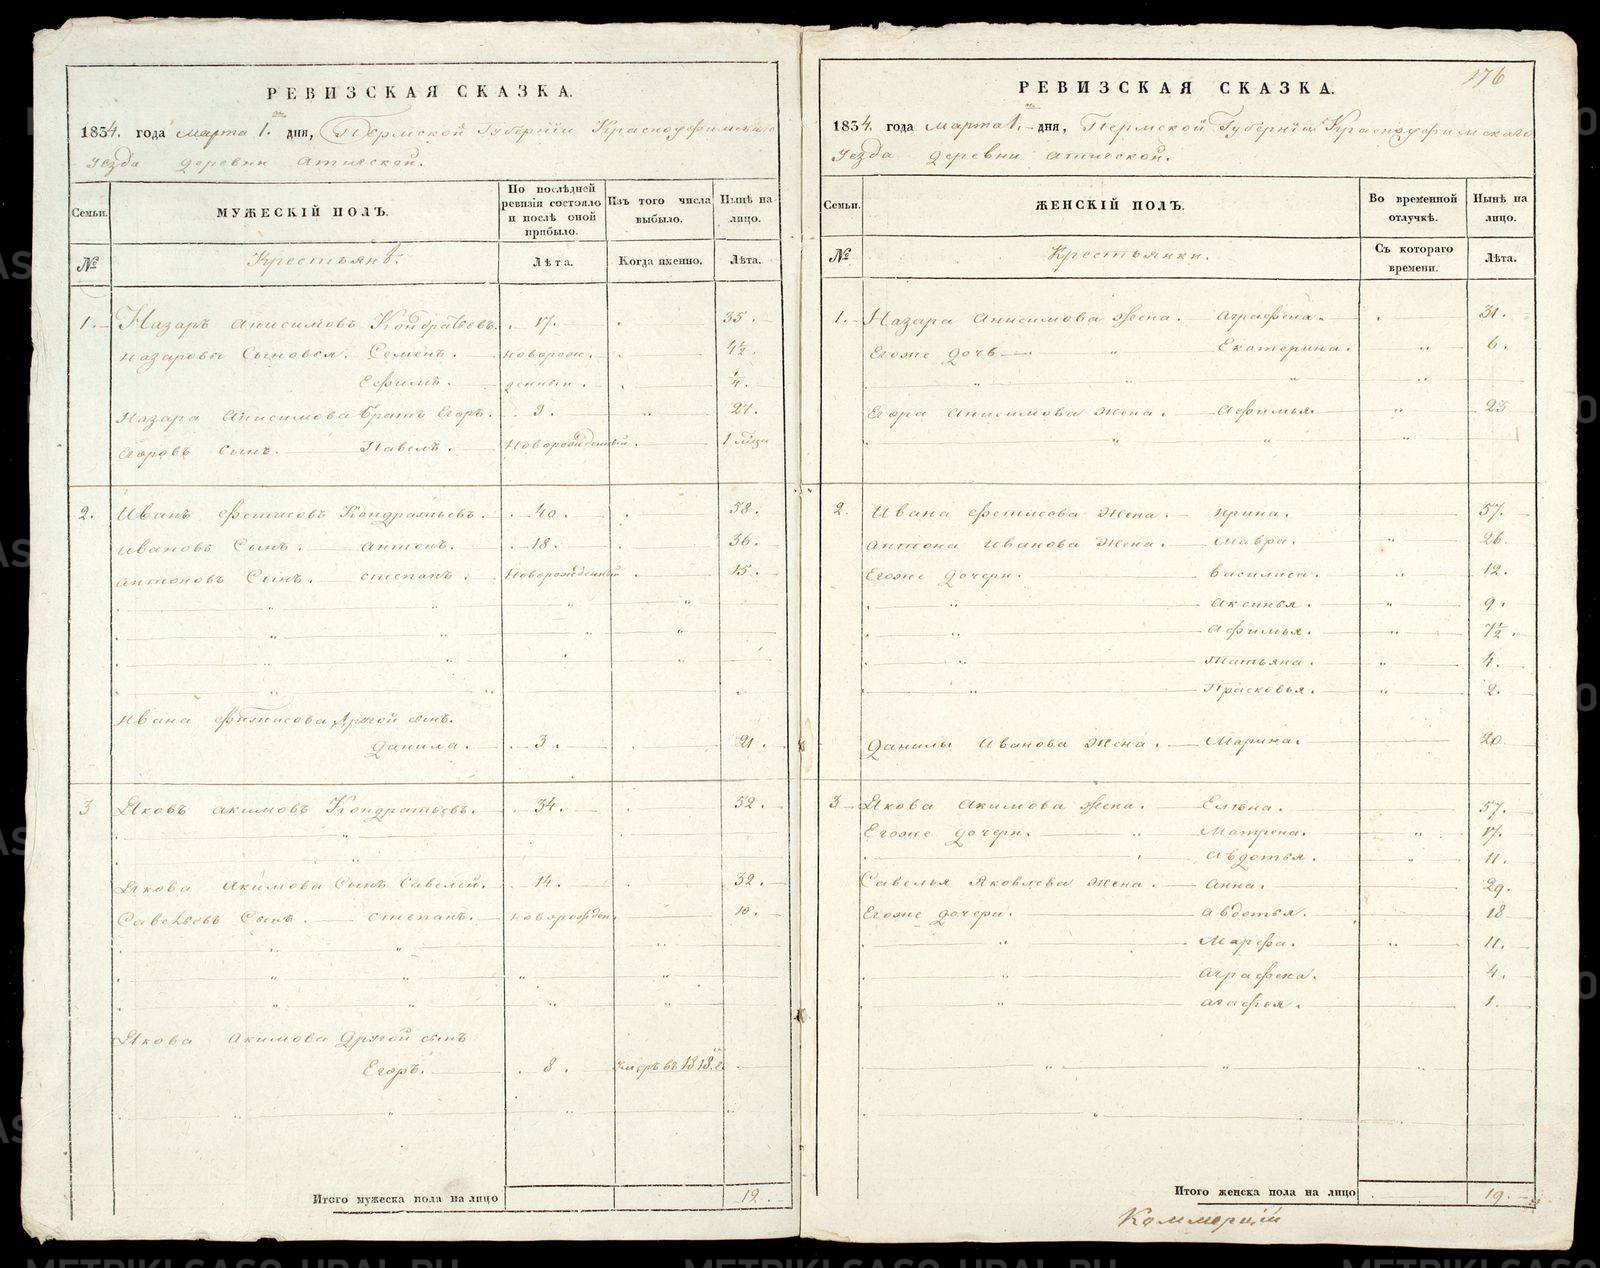 РЕВИЗСКАЯ СКАЗКА.
1834. года марта 1. дня, Пермской Губернiи Красноуфимскаго
уезда деревни Атигской.
Семьи. МУЖЕСКIЙ ПОЛЪ. По послѣдней ревизiи состояло и послѣ оной прибыло. Изъ того числа выбыло. Нынѣ на лицо.
№ Крестьянѣ. Лѣта. Когда именно. Лѣта.
1. Назаръ Анисимовъ Кондратьевъ. 17. 35.
Назаровы Сыновья. Семенъ. новорож. 4½.
Ефимъ. денныи. ¼.
Назара Анисимова братъ Егоръ. 9. 27.
Егоровъ сынъ. Павелъ. Новорожденный 1
2. Иванъ Фетисовъ Кондратьевъ. 40. 58.
Ивановъ Сынъ. Антонъ. 18. 36.
Антоновъ Сынъ. степанъ. Новорожденный 15.
Ивана Фетисова другой сынъ.
Данила. 3. 21.
3 Яковъ Акимовъ Кондратьевъ. 34. 52.
Якова Акимова Сынъ Савелей. 14. 32.
Савельевъ Сынъ. степанъ. новорожден. 10.
Якова Акимова Другой сынъ
Егоръ. 8. Умеръ въ 1818.г.
Итого мужеска пола на лицо 12.
176
РЕВИЗСКАЯ СКАЗКА.
1834. года марта 1. дня, Пермской Губернiи Красноуфимскаго
уезда деревни Атигской.
Семьи. ЖЕНСКIЙ ПОЛЪ. Во временной отлучкѣ. Нынѣ на лицо.
№ Крестьянки. Съ котораго времени. Лѣта.
1. Назара Анисимова Жена. Аграфена. 31.
Егоже дочь Екатерина. 6.
Егора Анисимова жена. Афимья. 23
2. Ивана Фетисова Жена. Ирина. 57.
Антона Иванова Жена. Мавра. 26.
Егоже дочери. Василиса. 12.
Аксинья. 9.
Афимья. 7½.
Татьяна. 4.
Прасковья. 2.
Данилы Иванова Жена. Марина. 20.
3 Якова Акимова Жена. Елѣна. 57.
Егоже дочери. Матрена. 17.
Авдотья. 11.
Савелья Яковлева Жена. Анна. 29.
Егоже дочери. Авдотья. 18
Марфа. 11.
Аграфена. 4.
Агафья. 1.
Итого женска пола на лицо 19.
METRIKI.GASO-URAL.RU
METRIKI.GASO-URAL.RU